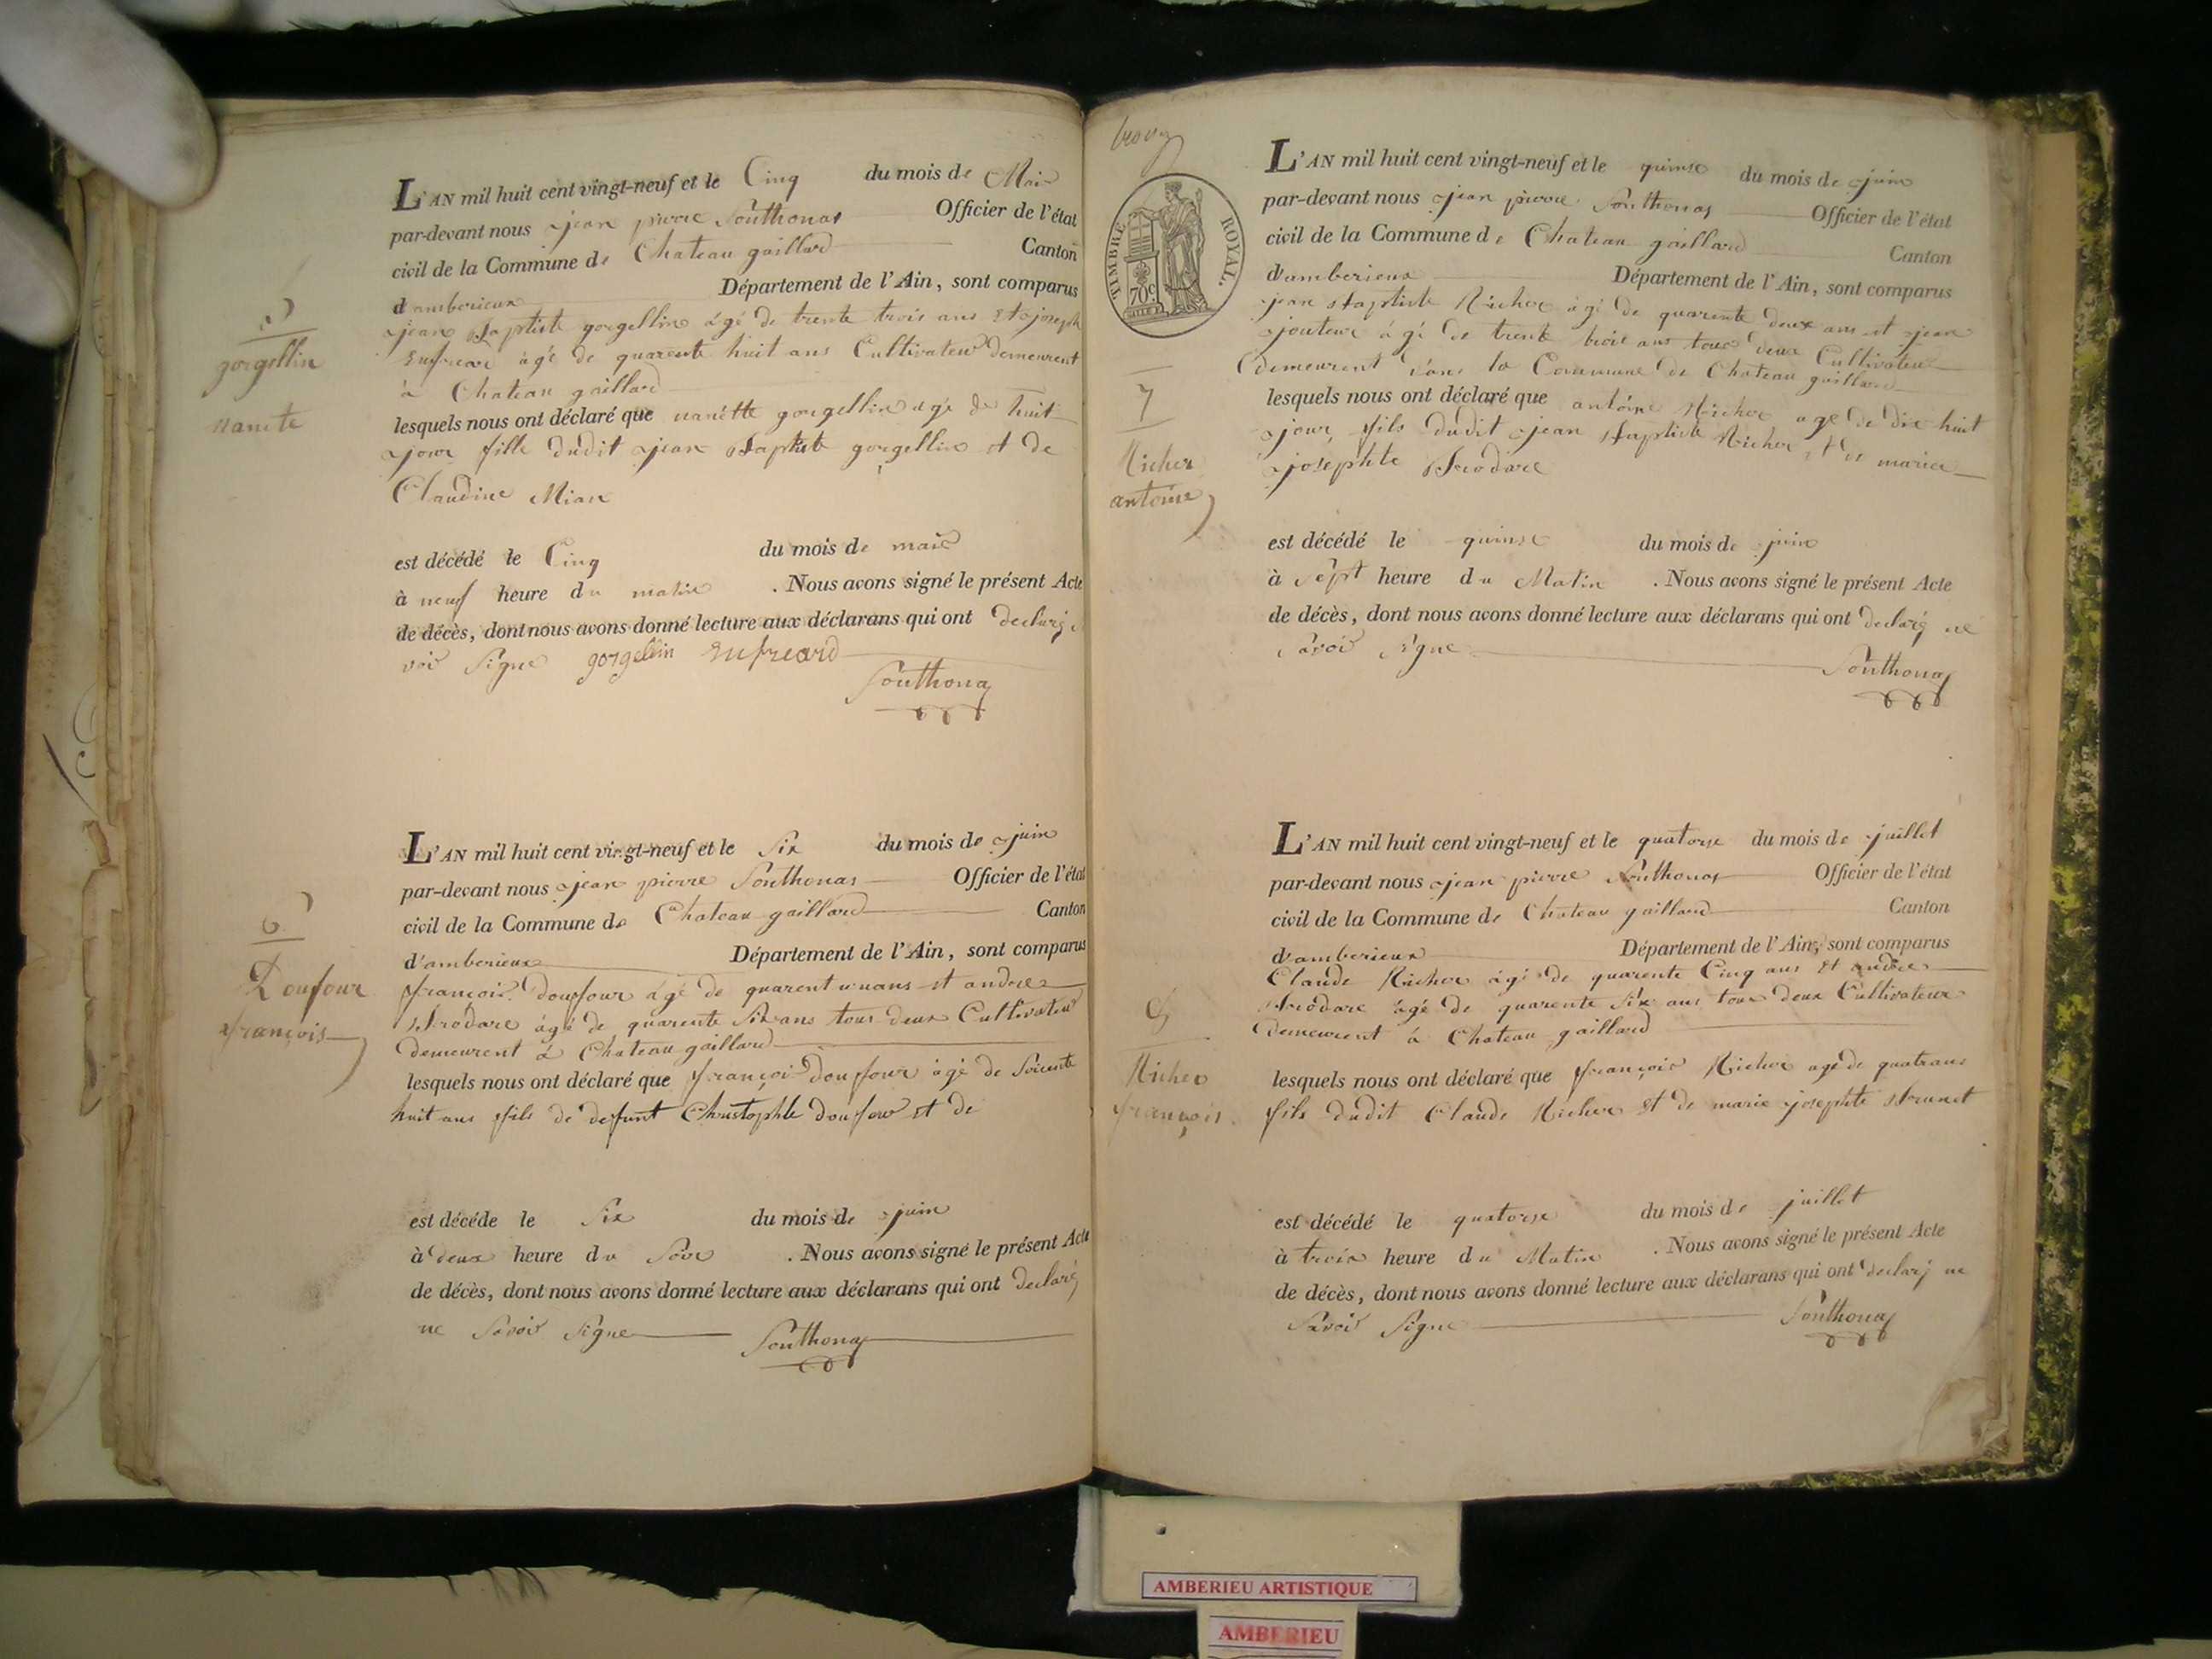 L'AN mil huit cent vingt-neuf et le Cinq du mois de Mai
par-devant nous jean pierre Southonas Officier de l'état
civil de la Commune de Chateau gaillard Canton
d'amberieux Département de l'Ain, sont comparus
jean Baptiste gorgellin âgé de trente trois ans Et joseph
Eufreard âgé de quarente huit ans Cultivateur demeurent
à Chateau gaillard
lesquels nous ont déclaré que nanétte gorgellin agé de huit
jour fille dudit jean Baptiste gorgellin et de
Claudine Mian
est décédé le Cinq du mois de mai
à neuf heure du matin . Nous avons signé le présent Acte
de décès, dont nous avons donné lecture aux déclarans qui ont
voir Signe gorgellin Eufreard
Southonas
gorgellin
nanete
L'AN mil huit cent vingt-neuf et le Six du mois de juin
par-devant nous jean pierre Southonas Officier de l'état
civil de la Commune de Chateau gaillard Canton
d'amberieux Département de l'Ain, sont comparus
françois doufour âgé de quarent un ans et andre
Brodare âgé de quarente Six ans tous deux Cultivateur
demeurent à Chateau gaillard
lesquels nous ont déclaré que françois doufour âgé de Soicente
huit ans fils de defunt Christophle doufour et de
est décédé le Six du mois de juin
à deux heure du Soir . Nous avons signé le présent Acte
de décès, dont nous avons donné lecture aux déclarans qui ont declaré
ne Savoir Signe Southonas
6
Doufour
françois
TIMBRE ROYAL.
70c
L'AN mil huit cent vingt-neuf et le quinse du mois de juin
par-devant nous jean pierre Southonas Officier de l'état
civil de la Commune de Chateau gaillard Canton
d'amberieux Département de l'Ain, sont comparus
jean Baptiste Richer âgé de quarente deux ans et jean
jouteur âgé de trente trois ans tous deux Cultivateur
demeurent dans la Commune de Chateau gaillard
lesquels nous ont déclaré que antoine Richer age de dix huit
jour fils dudit jean Baptiste Richer et de marie
josephte Brodare
est décédé le quinse du mois de juin
à Sept heure du Matin . Nous avons signé le présent Acte
de décès, dont nous avons donné lecture aux déclarans qui ont declaré ne
Savoir Signe Southonas
7
Richer
antoine
L'AN mil huit cent vingt-neuf et le quatorse du mois de juillet
par-devant nous jean pierre Southonas Officier de l'état
civil de la Commune de Chateau gaillard Canton
d'amberieux Département de l'Ain, sont comparus
Claude Richer âgé de quarente Cinq ans Et andre
Brodare âgé de quarente Six ans tous deux Cultivateur
demeurent à Chateau gaillard
lesquels nous ont déclaré que françois Richer agé de quatrans
fils dudit Claude Richer Et de marie josephte Brunet
est décédé le quatorse du mois de juillet
à trois heure du Matin . Nous avons signé le présent Acte
de décès, dont nous avons donné lecture aux déclarans qui ont declaré ne
Savoir Signe Southonas
Richer
françois
AMBERIEU ARTISTIQUE
AMBERIEU